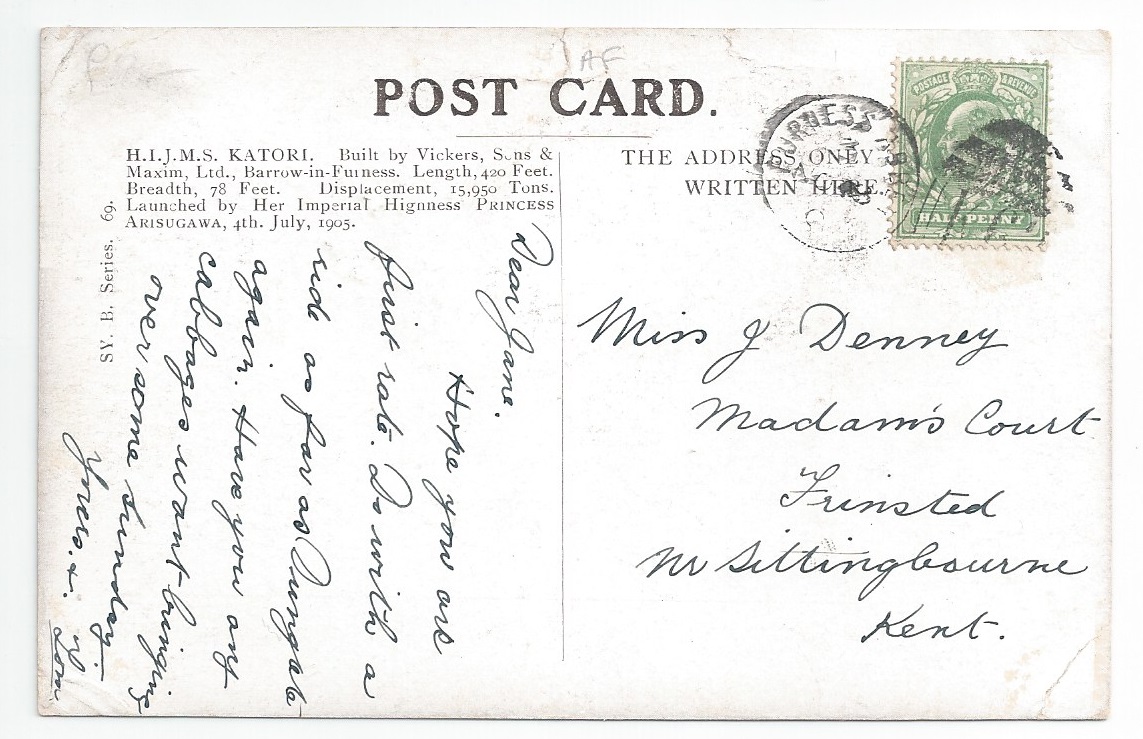 POST CARD.
H.I.J.M.S. KATORI. Built by Vickers, Sons &
Maxim, Ltd., Barrow-in-Furness. Length, 420 Feet.
Breadth, 78 Feet. Displacement, 15,950 Tons.
Launched by Her Imperial Highness PRINCESS
ARISUGAWA, 4th. July, 1905.
SY. B. Series. 69.
THE ADDRESS ONLY
WRITTEN HERE.
POSTAGE REVENUE
HALF PENNY
AF
Dear Jane.
Hope you are
first rate. Do with a
ride as far as Dungate
again. Have you any
cabbages want bringing
over some Sunday.
Yours. x. Tom
Miss J Denney
Madam's Court
Frinsted
Nr Sittingbourne
Kent.